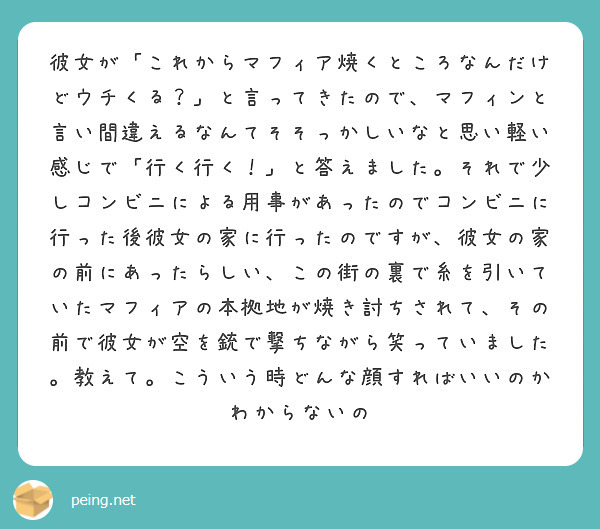 彼女が「これからマフィア焼くところなんだけ
どウチくる？」と言ってきたので、マフィンと
言い間違えるなんてそそっかしいなと思い軽い
感じで「行く行く！」と答えました。それで少
しコンビニによる用事があったのでコンビニに
行った後彼女の家に行ったのですが、彼女の家
の前にあったらしい、この街の裏で糸を引いて
いたマフィアの本拠地が焼き討ちされて、その
前で彼女が空を銃で撃ちながら笑っていました
。教えて。こういう時どんな顔すればいいのか
わからないの
peing.net